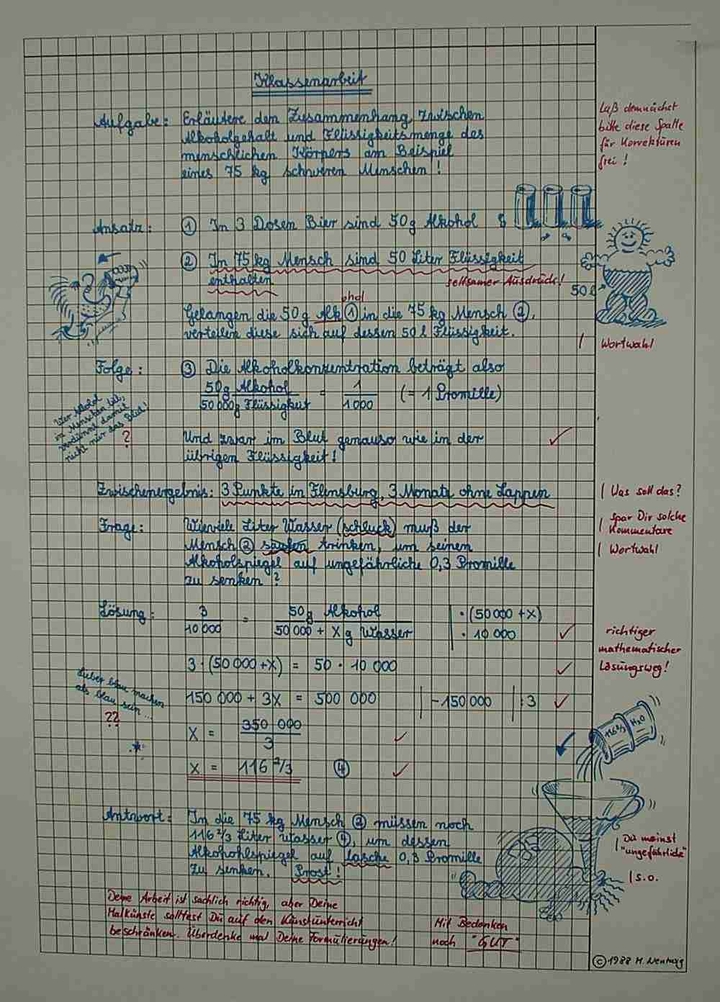 Klassenarbeit
Aufgabe: Erläutere den Zusammenhang zwischen
Alkoholgehalt und Flüssigkeitsmenge des
menschlichen Körpers am Beispiel
eines 75 kg schweren Menschen!
Laß demnächst
bitte diese Spalte
für Korrekturen
frei!
Ansatz: ① In 3 Dosen Bier sind 50g Alkohol
② In 75 kg Mensch sind 50 Liter Flüssigkeit
enthalten
seltsamer Ausdruck!
50 l
ohol
Gelangen die 50g Alk ① in die 75 kg Mensch ②,
verteilen diese sich auf dessen 50 l Flüssigkeit.
Wortwahl
Folge: ③ Die Alkoholkonzentration beträgt also
50g Alkohol / 50 000g Flüssigkeit = 1 / 1000 (= 1 Promille)
Wer Alkohol
im Menschen hat,
verdünnt damit
nicht nur das Blut!
?
Und zwar im Blut genauso wie in der
übrigen Flüssigkeit!
Zwischenergebnis: 3 Punkte in Flensburg, 3 Monate ohne Lappen
Was soll das?
Frage: Wieviele Liter Wasser (schluck) muß der
Mensch ② saufen trinken, um seinen
Alkoholspiegel auf ungefährliche 0,3 Promille
zu senken?
Spar Dir solche
Kommentare
Wortwahl
Lösung: 3 / 10 000 = 50g Alkohol / 50 000 + X g Wasser | · (50 000 + X) · 10 000
3 · (50 000 + X) = 50 · 10 000
richtiger
mathematischer
Lösungsweg!
150 000 + 3X = 500 000 | - 150 000 | : 3
Lieber blau machen
als blau sein...
??
X = 350 000 / 3
X = 116 2/3 ④
116 2/3 H₂O
Antwort: In die 75 kg Mensch ② müssen noch
116 2/3 Liter Wasser ④, um dessen
Alkohohlspiegel auf lasche 0,3 Promille
zu senken. Prost!
Du meinst
"ungefährliche"
s.o.
Deine Arbeit ist sachlich richtig, aber Deine
Malkünste solltest Du auf den Kunstunterricht
beschränken. Überdenke mal Deine Formulierungen!
Mit Bedenken
noch "GUT"